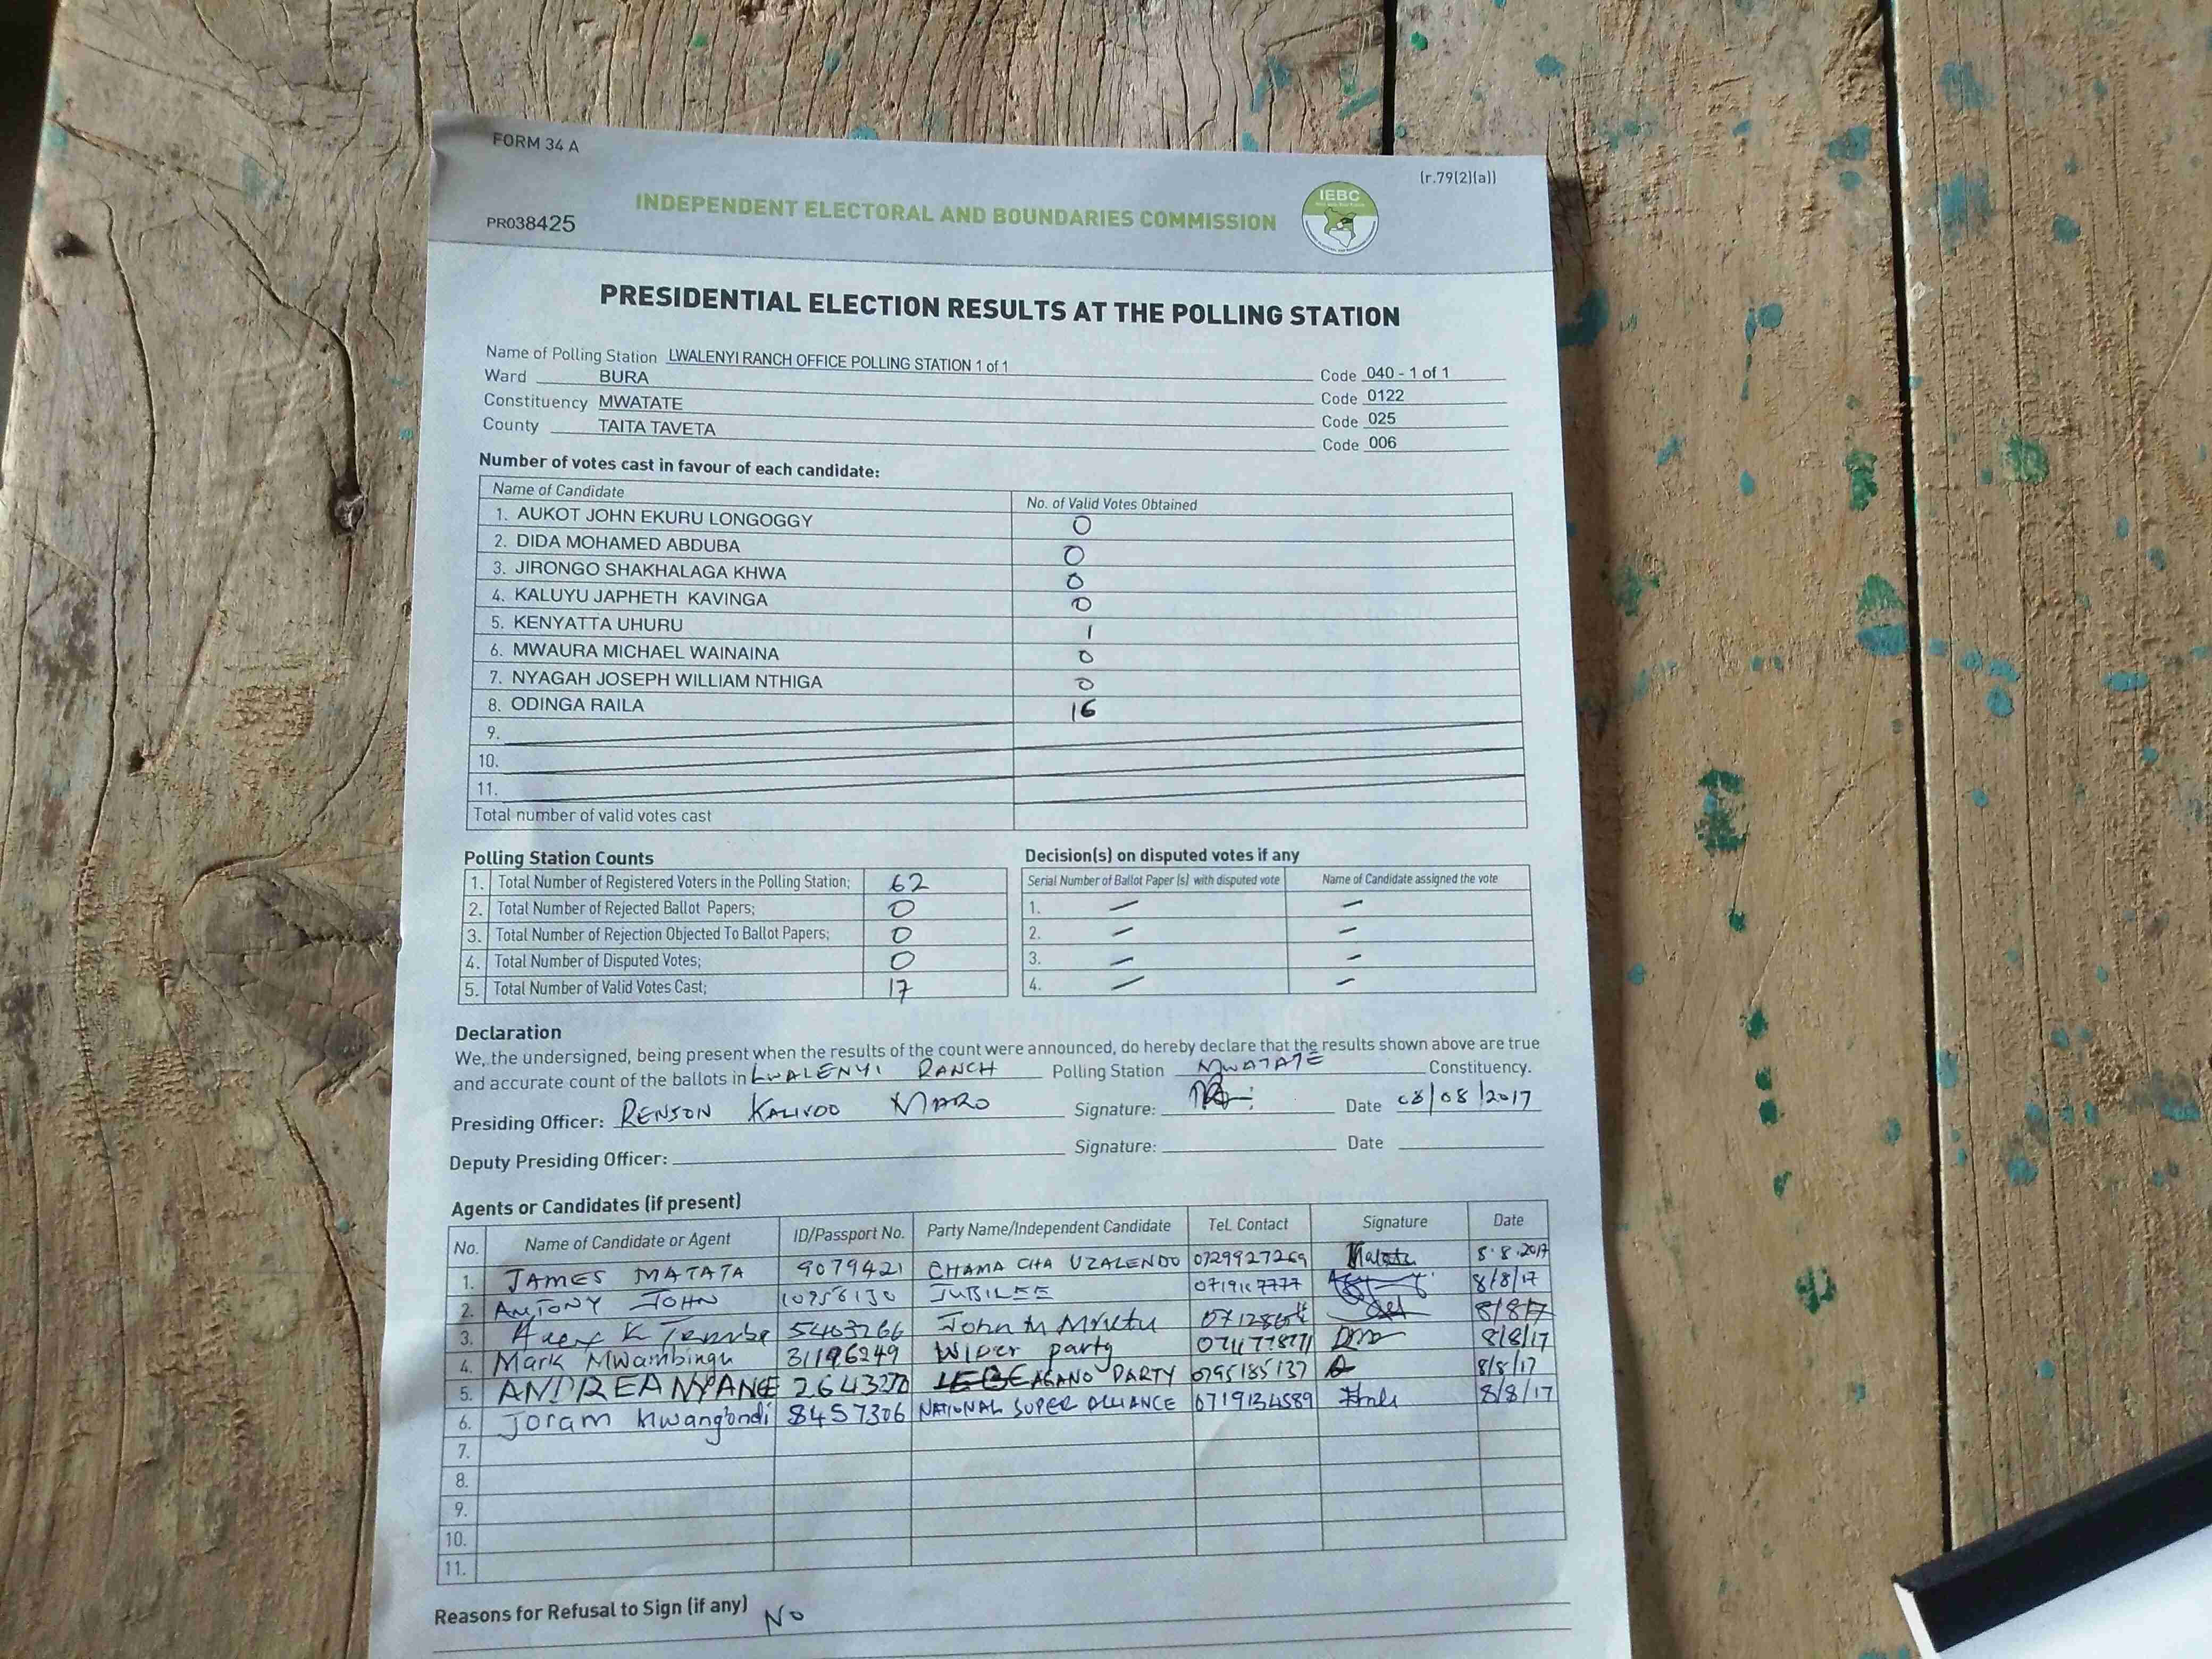 FORM 34 A
(r.79(2)(a))
IEBC
INDEPENDENT ELECTORAL AND BOUNDARIES COMMISSION
PR038425
PRESIDENTIAL ELECTION RESULTS AT THE POLLING STATION
Name of Polling Station LWALENYI RANCH OFFICE POLLING STATION 1 of 1 Code 040 - 1 of 1
Ward BURA Code 0122
Constituency MWATATE Code 025
County TAITA TAVETA Code 006
Number of votes cast in favour of each candidate:
Name of Candidate No. of Valid Votes Obtained
1. AUKOT JOHN EKURU LONGOGGY 0
2. DIDA MOHAMED ABDUBA 0
3. JIRONGO SHAKHALAGA KHWA 0
4. KALUYU JAPHETH KAVINGA 0
5. KENYATTA UHURU 1
6. MWAURA MICHAEL WAINAINA 0
7. NYAGAH JOSEPH WILLIAM NTHIGA 0
8. ODINGA RAILA 16
9.
10.
11.
Total number of valid votes cast
Polling Station Counts Decision(s) on disputed votes if any
1. Total Number of Registered Voters in the Polling Station; 62 Serial Number of Ballot Paper (s) with disputed vote Name of Candidate assigned the vote
2. Total Number of Rejected Ballot Papers; 0 1. – –
3. Total Number of Rejection Objected To Ballot Papers; 0 2. – –
4. Total Number of Disputed Votes; 0 3. – –
5. Total Number of Valid Votes Cast; 17 4. – –
Declaration
We, the undersigned, being present when the results of the count were announced, do hereby declare that the results shown above are true
and accurate count of the ballots in LWALENYI RANCH Polling Station MWATATE Constituency.
Presiding Officer: RENSON KALIVDO MARO Signature: Date 08/08/2017
Deputy Presiding Officer: Signature: Date
Agents or Candidates (if present)
No. Name of Candidate or Agent ID/Passport No. Party Name/Independent Candidate Tel. Contact Signature Date
1. JAMES MATATA 9079421 CHAMA CHA UZALENDO 0729927269 8.8.2017
2. ANTONY JOHN JUBILEE 8/8/17
3. K 5403266 John M 8/8/17
4. Mark Mwambingu 31196249 Wiper party 8/8/17
5. ANDREA NYANGE AGANO PARTY 0795185137 8/8/17
6. Joram Mwang'ondi 8457306 NATIONAL SUPER ALLIANCE 0719134589 8/8/17
7.
8.
9.
10.
11.
Reasons for Refusal to Sign (if any) No